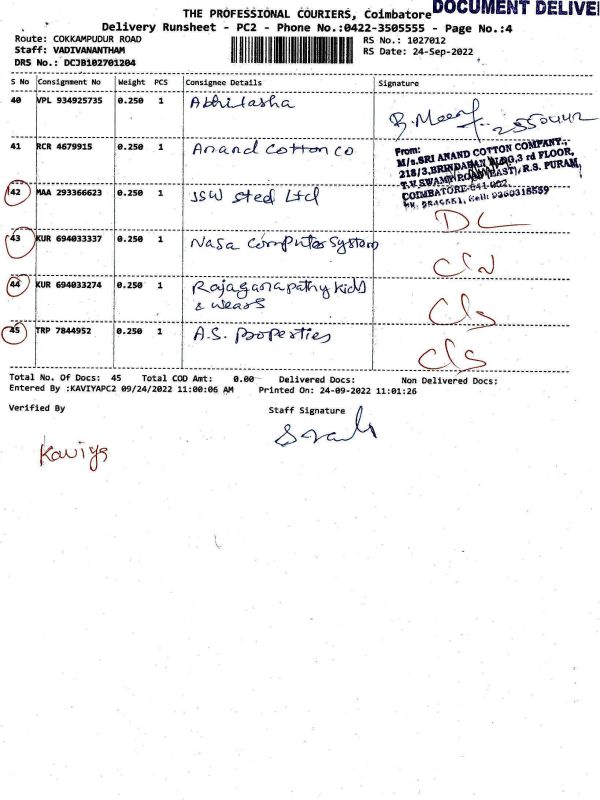 DOCUMENT DELIVE
THE PROFESSIONAL COURIERS, Coimbatore
Delivery Runsheet - PC2 - Phone No.:0422-3505555 - Page No.:4
Route: COKKAMPUDUR ROAD
RS No.: 1027012
Staff: VADIVANANTHAM
RS Date: 24-Sep-2022
DRS No.: DCJB102701204
S No Consignment No Weight PCS Consignee Details Signature
40 VPL 934925735 0.250 1 Abhilasha
41 RCR 4679915 0.250 1 Anand Cotton co
From:
M/s.SRI ANAND COTTON COMPANY.,
218/3,BRINDABAN BLDG,3 rd FLOOR,
T.V.SWAMY ROAD (EAST), R.S. PURAM,
COIMBATORE-641 002.
42 MAA 293366623 0.250 1 JSW Steel Ltd DL
43 KUR 694033337 0.250 1 Nasa Computer System
44 KUR 694033274 0.250 1 Rajaganapathy Kids
& wears
Cls
45 TRP 7844952 0.250 1 A.S. Properties Cls
Total No. Of Docs: 45 Total COD Amt: 0.00 Delivered Docs: Non Delivered Docs:
Entered By :KAVIYAPC2 09/24/2022 11:00:06 AM Printed On: 24-09-2022 11:01:26
Verified By Staff Signature
Kaviya